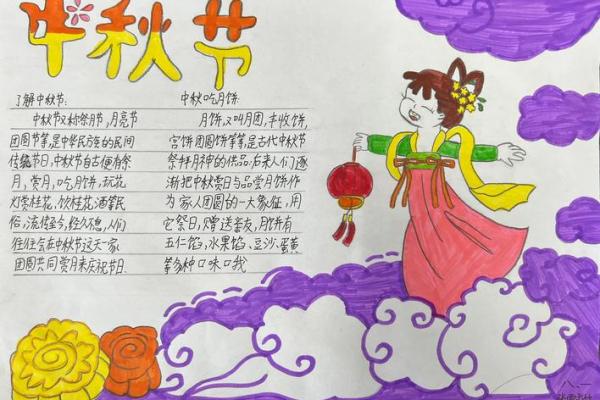 中秋节
了解中秋节:
中秋节又称祭月节,月亮节
团圆节等,是中华民族的民间
传统节日,中秋节自古便有祭
月,赏月,吃月饼,玩花
灯赏桂花,饮桂花酒等民
俗,流传至今,经久不息,人们
往往会在中秋节这天一家
团圆共同赏月来庆祝节日.
中秋吃月饼:
月饼,又叫月团,丰收饼,
宫饼团圆饼等等,是古代中秋节
祭拜月神的供品,后来人们逐
渐把中秋赏月与品尝月饼作
为家人团圆的一大象征,用
它祭日,赠送亲友,月饼有
五仁馅,水果馅、豆沙、蛋黄
等多种口味口我
八.一